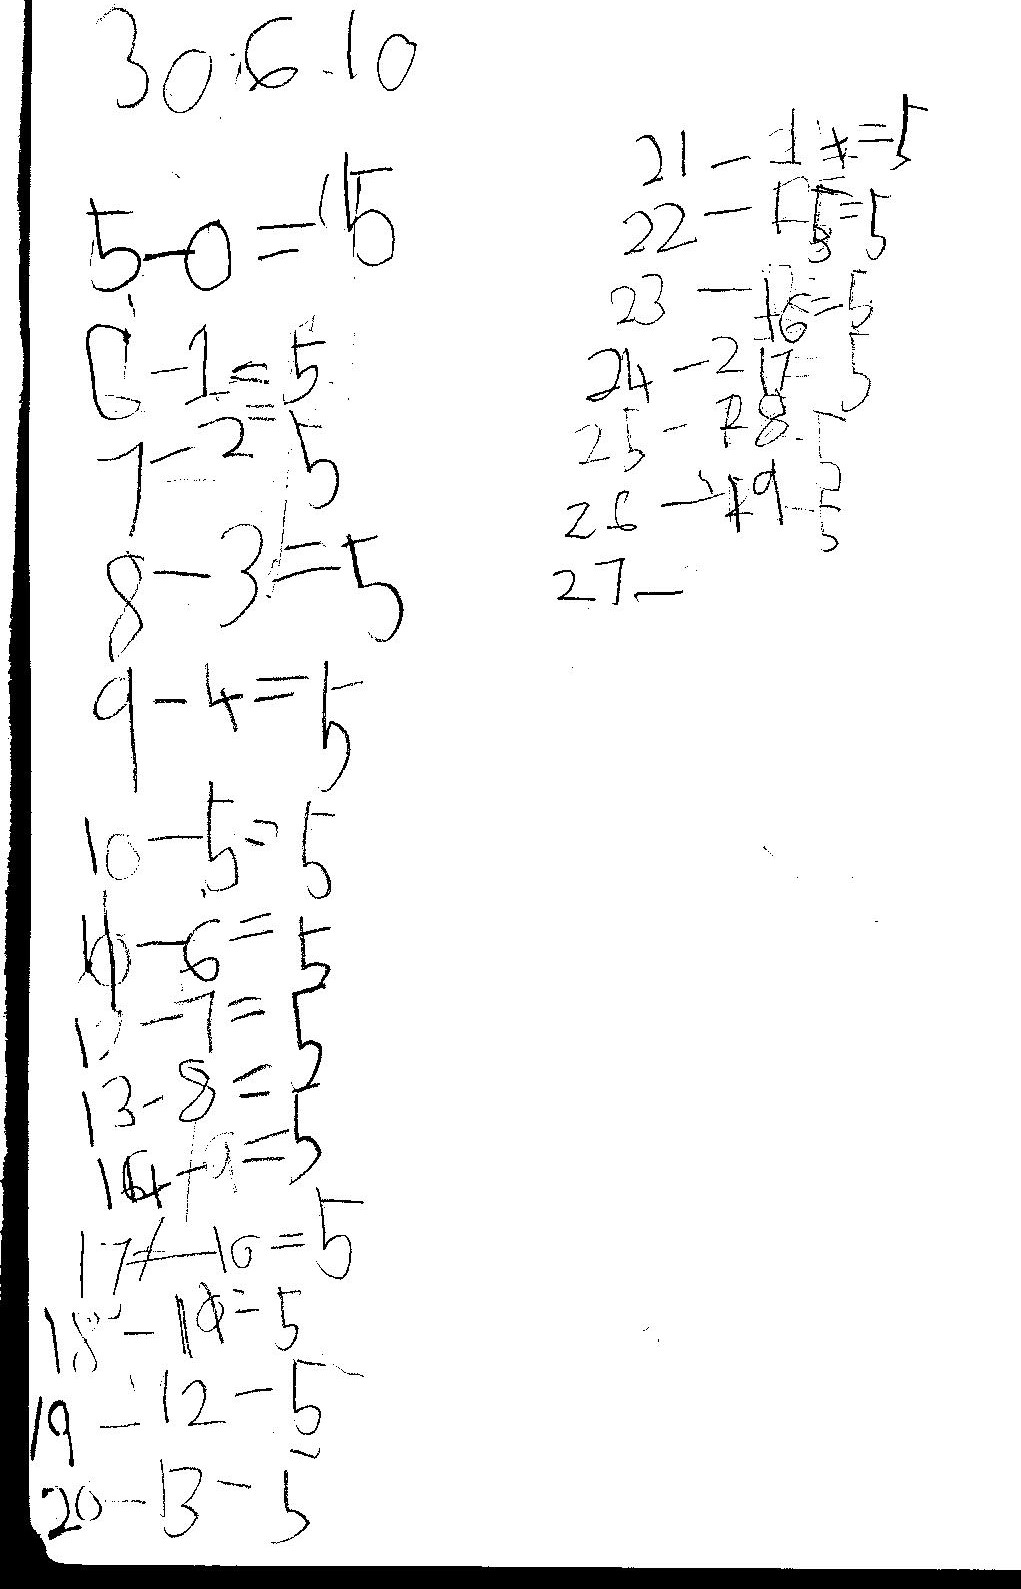 30.6.10
5-0=5
6-1=5
7-2=5
8-3=5
9-4=5
10-5=5
11-6=5
12-7=5
13-8=5
14-9=5
17-10=5
18-11=5
19-12-5
20-13-5
21-14=5
22-15=5
23-16=5
24-17=5
25-18-5
26-19-5
27-